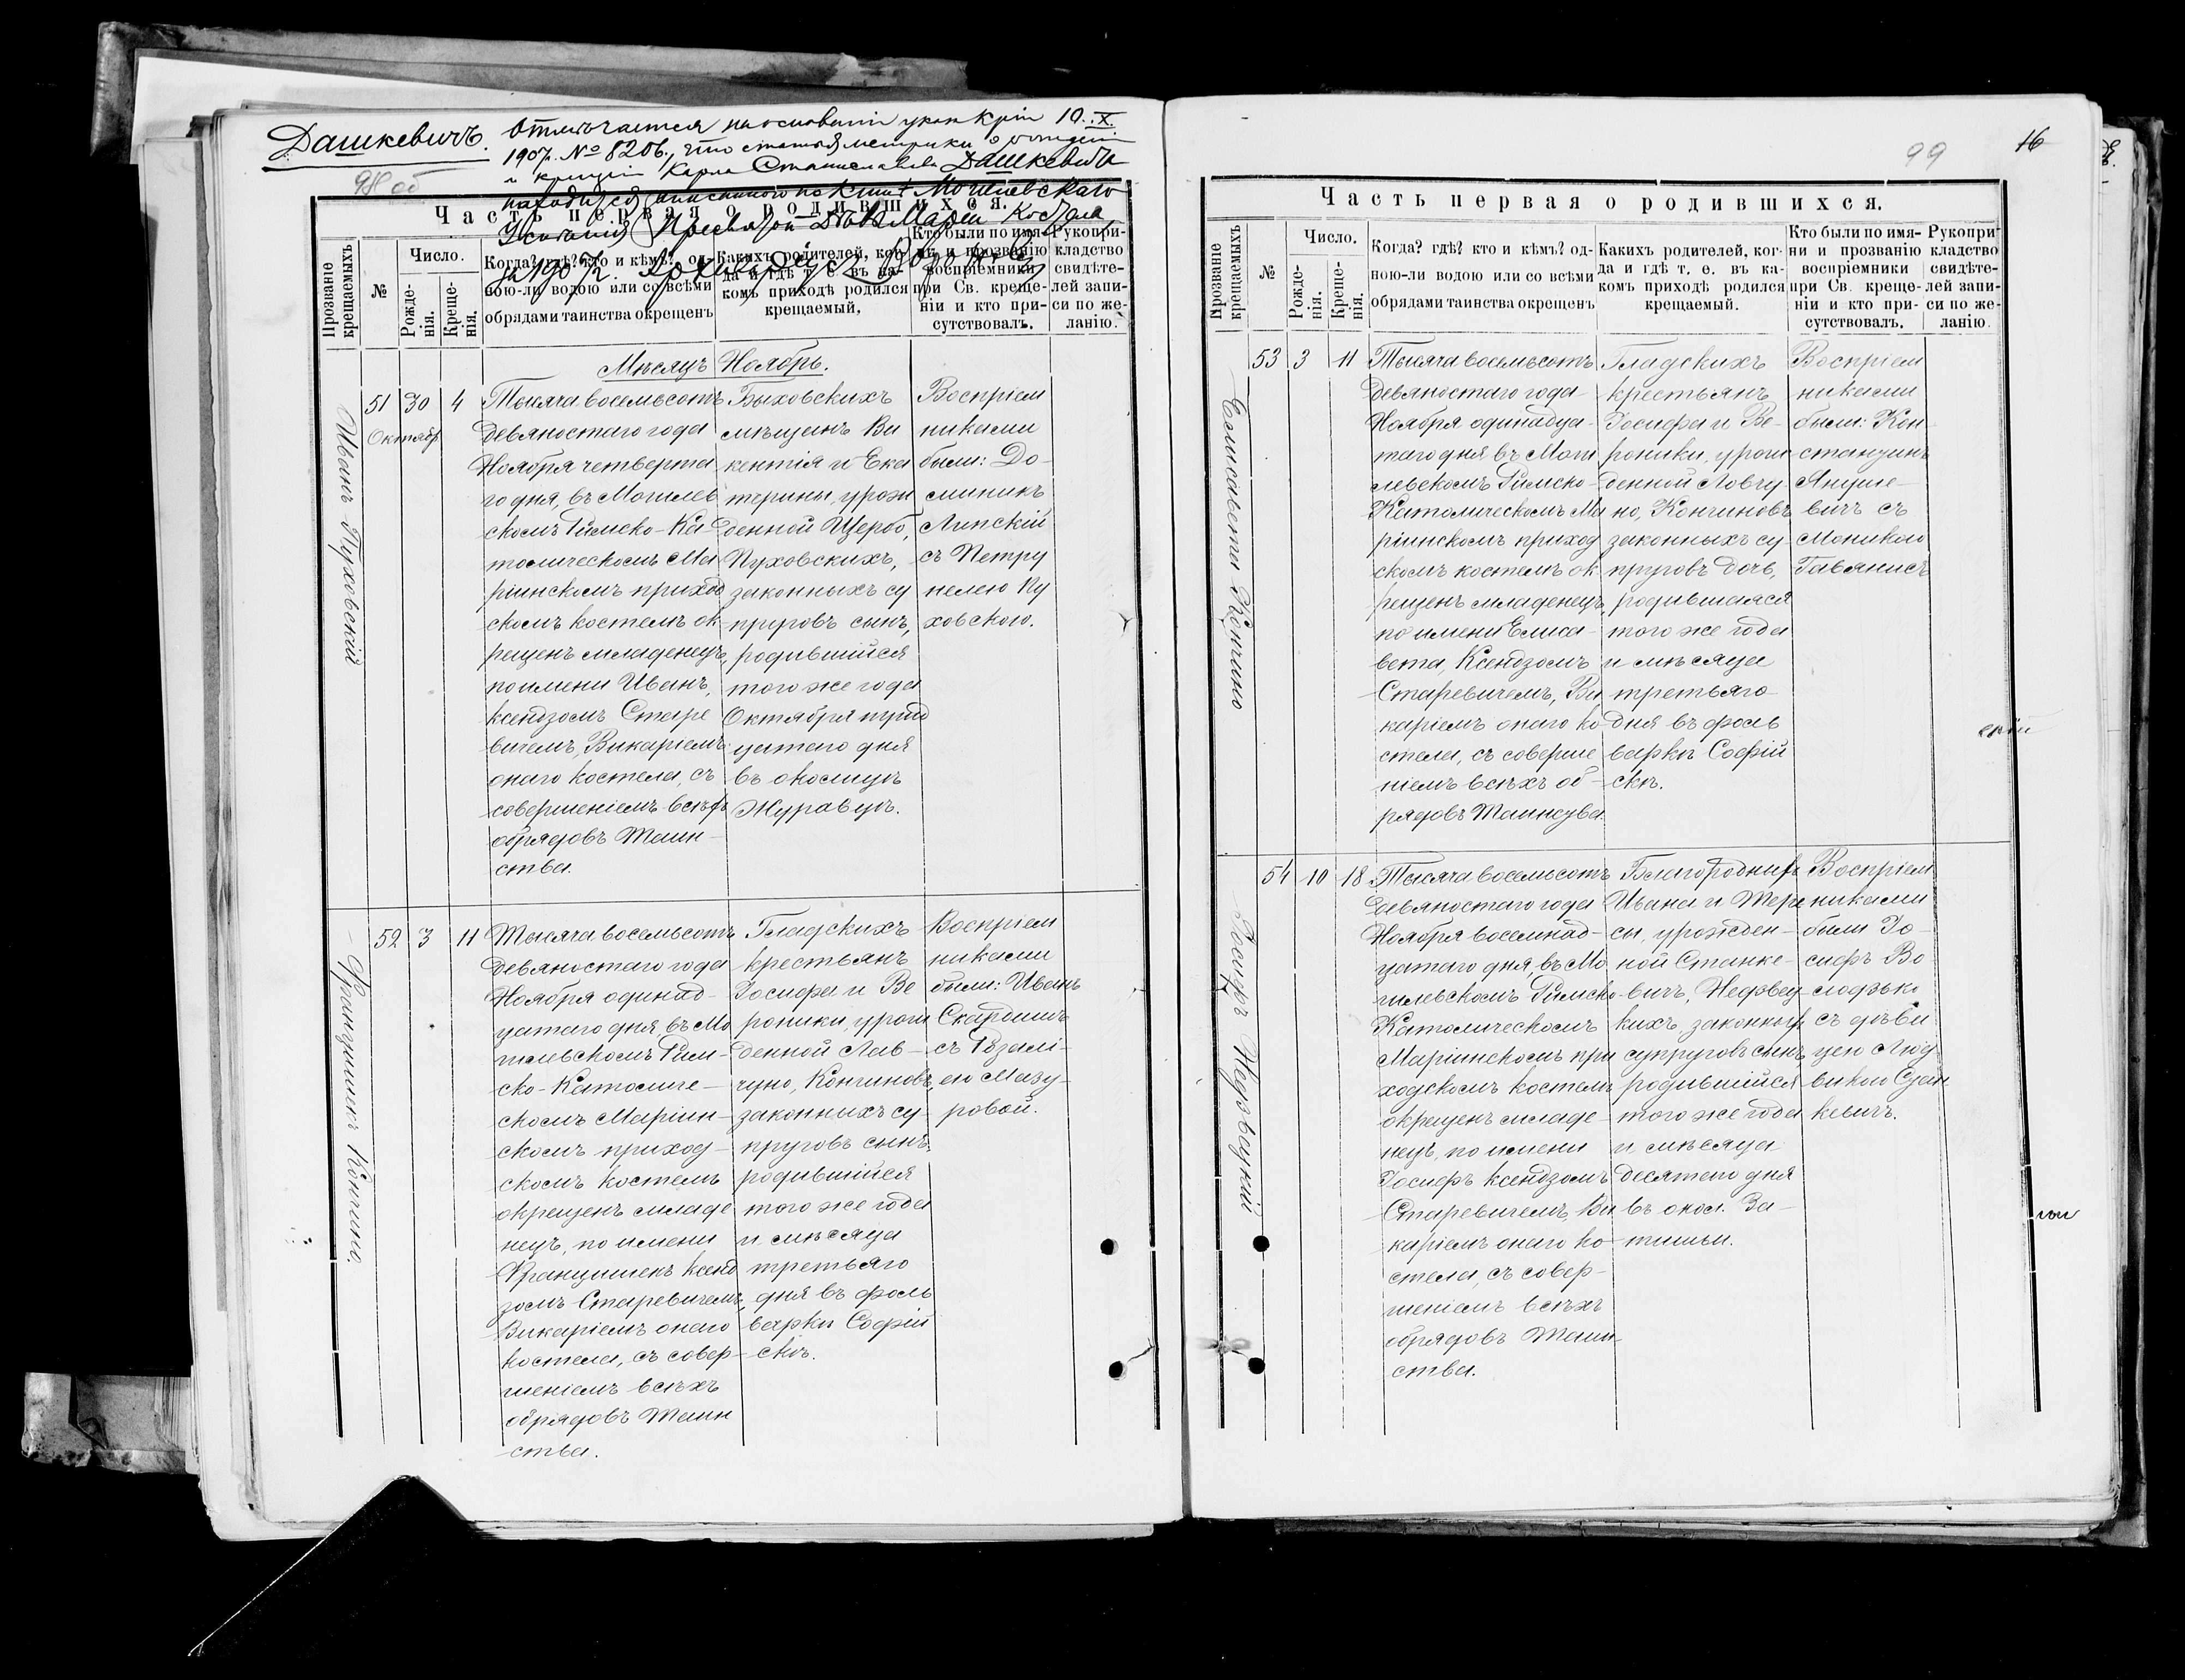 Дашкевичъ.
Отмѣчается на основаніи указ. Кріи 10. X.
1907. № 8206, что статья метрики о рожденіи
и крещеніи Карла Станиславова Дашкевича
находится вписанного по книгѣ Могилевскаго
Успенія Пресвятой Дѣвы Маріи Костела
за 1907 г.
98 об
Часть первая о родившихся.
Прозваніе крещаемыхъ
№
Число.
Рожде-
нія.
Креще-
нія.
Когда? гдѣ? кто и кѣмъ? од-
ною-ли водою или со всѣми
обрядами таинства окрещенъ
Какихъ родителей, ког-
да и гдѣ т. е. въ ка-
комъ приходѣ родился
крещаемый,
Кто были по имя-
ни и прозванію
воспріемники
при Св. креще-
ніи и кто при-
сутствовалъ.
Рукопри-
кладство
свидѣте-
лей запи-
си по же-
ланію.
Мѣсяцъ Ноябрь.
Иванъ Пуховскій
51 30 4
Октябр
Тысяча восемьсотъ
девяностаго года
Ноября четверта
го дня, въ Могилев
скомъ Римско-Ка-
толическомъ Ма
ріинскомъ приход
скомъ костелѣ ок
рещенъ младенецъ,
по имени Иванъ,
ксендзомъ Старе
вичемъ, Викаріемъ
онаго костела, съ
совершеніемъ всѣхъ
обрядовъ Таин-
ства.
Быховскихъ
мѣщанъ Ви
кентія и Ека
терины, урож
денной Щербо,
Пуховскихъ,
законныхъ су
пруговъ сынъ,
родившійся
того же года
Октября трид
цатаго дня
въ околицѣ
Журавцѣ.
Воспріем
никами
были: До-
миникъ
Липскій
съ Петру
нелею Пу
ховскою.
Францишекъ Кончино.
52 3 11
Тысяча восемьсотъ
девяностаго года
Ноября одинад-
цатаго дня въ Мо
гилевскомъ Рим-
ско-Католиче-
скомъ Маріин-
скомъ приход-
скомъ костелѣ
окрещенъ младе
нецъ, по имени
Францишекъ ксенд
зомъ Старевичемъ,
Викаріемъ онаго
костела, съ совер-
шеніемъ всѣхъ
обрядовъ Таин
ства.
Гладскихъ
крестьянъ
Іосифа и Ве
роники, урож
денной Лав-
чуно, Кончиновъ,
законныхъ су-
пруговъ сынъ,
родившійся
того же года
и мѣсяца
третьяго
дня въ фоль
варкѣ Софій
скѣ.
Воспріем
никами
были: Иванъ
съ Розалі-
ею Мазу-
ровой.
99
16
Часть первая о родившихся.
Прозваніе крещаемыхъ
№
Число.
Рожде-
нія.
Креще-
нія.
Когда? гдѣ? кто и кѣмъ? од-
ною-ли водою или со всѣми
обрядами таинства окрещенъ
Какихъ родителей, ког-
да и гдѣ т. е. въ ка-
комъ приходѣ родился
крещаемый.
Кто были по имя-
ни и прозванію
воспріемники
при Св. креще-
ніи и кто при-
сутствовалъ.
Рукопри-
кладство
свидѣте-
лей запи-
си по же-
ланію.
Елисавета Кончино
53 3 11
Тысяча восемьсотъ
девяностаго года
Ноября одинадца-
таго дня въ Моги
левскомъ Римско-
Католическомъ Ма
ріинскомъ приход
скомъ костелѣ ок
рещенъ младенецъ,
по имени Елиса-
вета, Ксендзомъ
Старевичемъ, Ви
каріемъ онаго ко
стела, съ соверше
ніемъ всѣхъ об-
рядовъ Таинства.
Гладскихъ
крестьянъ
Іосифа и Ве-
роники, урож
денной Ловчу
но, Кончиновъ
законныхъ су-
пруговъ дочь,
родившаяся
того же года
и мѣсяца
третьяго
дня въ фоль
варкѣ Софій
скѣ.
Воспріем
никами
были: Кон-
станцинъ
Януше-
вичъ съ
Моникою
Іосифъ Недзвецкій
54 10 18
Тысяча восемьсотъ
девяностаго года
Ноября восемнад-
цатаго дня, въ Мо
гилевскомъ Римско-
Католическомъ
Маріинскомъ при
ходскомъ костелѣ
окрещенъ младе-
нецъ, по имени
Іосифъ ксендзомъ
Старевичемъ, Ви
каріемъ онаго ко
стела, съ совер-
шеніемъ всѣхъ
обрядовъ Таин-
ства.
Благородныхъ
Ивана и Тере
сы, урожден-
ной Станке-
вичъ, Недзвец
кихъ, законныхъ
супруговъ сынъ,
родившійся
того же года
и мѣсяца
десятаго дня
въ окол. За-
тишьи.
Воспріем
никами
были Іо-
сифъ Во
лодзько
съ дѣви
цею Люд-
викою Стан
кевичъ.